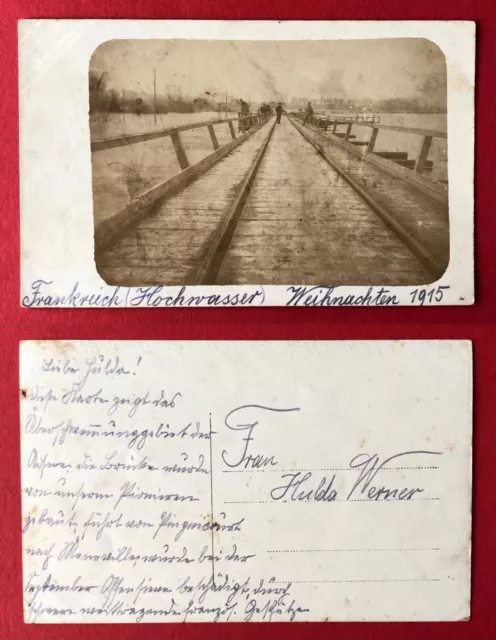 Frankreich (Hochwasser) Weihnachten 1915
Liebe Hulda!
diese Karte zeigt das
Überschwemmunggebiet der
Aisne, die Brücke wurde
von unseren Pionieren
gebaut, führt von
nach wurde bei der
September Offensive beschädigt, durch
schwere weittragende französ. Geschütze
Frau
Hulda Werner